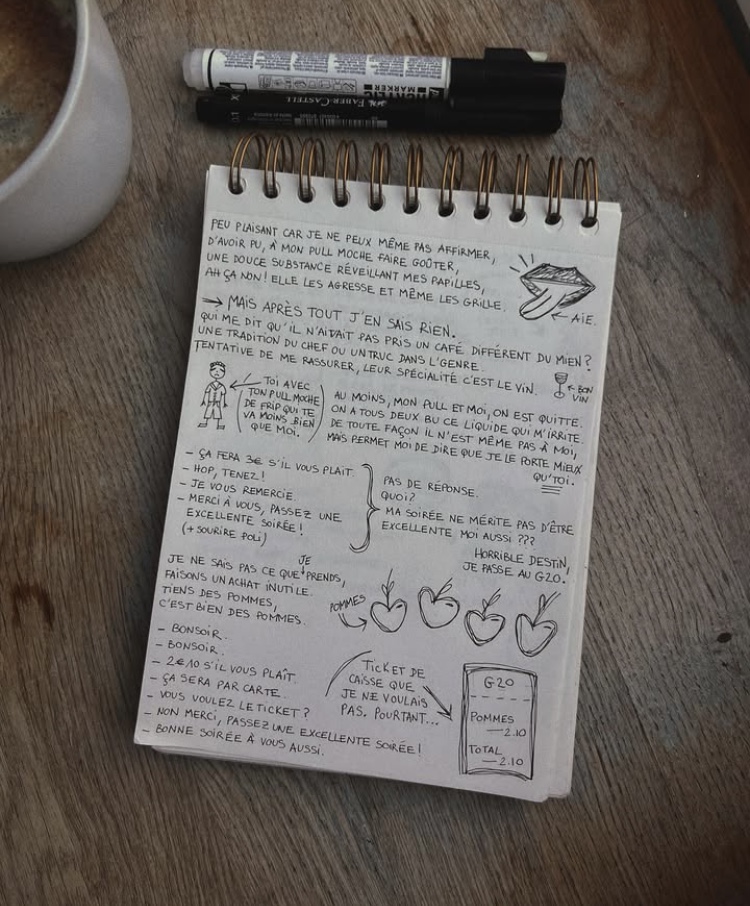 FABER-CASTELL
MARKER
PEU PLAISANT CAR JE NE PEUX MÊME PAS AFFIRMER,
D'AVOIR PU, À MON PULL MOCHE FAIRE GOÛTER,
UNE DOUCE SUBSTANCE RÉVEILLANT MES PAPILLES,
AH ÇA NON! ELLE LES AGRESSE ET MÊME LES GRILLE.
← AÏE.
→ MAIS APRÈS TOUT J'EN SAIS RIEN.
QUI ME DIT QU'IL N'AVAIT PAS PRIS UN CAFÉ DIFFÉRENT DU MIEN?
UNE TRADITION DU CHEF OU UN TRUC DANS L'GENRE.
TENTATIVE DE ME RASSURER, LEUR SPÉCIALITÉ C'EST LE VIN.
← BON
VIN
TOI AVEC
TON PULL MOCHE
DE FRIP QUI TE
VA MOINS BIEN
QUE MOI.
AU MOINS, MON PULL ET MOI, ON EST QUITTE.
ON A TOUS DEUX BU CE LIQUIDE QUI M'IRRITE.
DE TOUTE FAÇON IL N'EST MÊME PAS À MOI,
MAIS PERMET MOI DE DIRE QUE JE LE PORTE MIEUX
QU'TOI.
- ÇA FERA 3€ S'IL VOUS PLAIT.
- HOP, TENEZ!
- JE VOUS REMERCIE.
- MERCI À VOUS, PASSEZ UNE
EXCELLENTE SOIRÉE!
(+ SOURIRE POLI)
PAS DE RÉPONSE.
QUOI?
MA SOIRÉE NE MÉRITE PAS D'ÊTRE
EXCELLENTE MOI AUSSI ???
HORRIBLE DESTIN,
JE PASSE AU G20.
JE NE SAIS PAS CE QUE JE PRENDS,
FAISONS UN ACHAT INUTILE.
TIENS DES POMMES,
C'EST BIEN DES POMMES.
POMMES
- BONSOIR.
- BONSOIR.
- 2€10 S'IL VOUS PLAÎT.
- ÇA SERA PAR CARTE.
- VOUS VOULEZ LE TICKET?
- NON MERCI, PASSEZ UNE EXCELLENTE SOIRÉE!
- BONNE SOIRÉE À VOUS AUSSI.
TICKET DE
CAISSE QUE
JE NE VOULAIS
PAS, POURTANT...
G20
POMMES
— 2.10
TOTAL
— 2.10